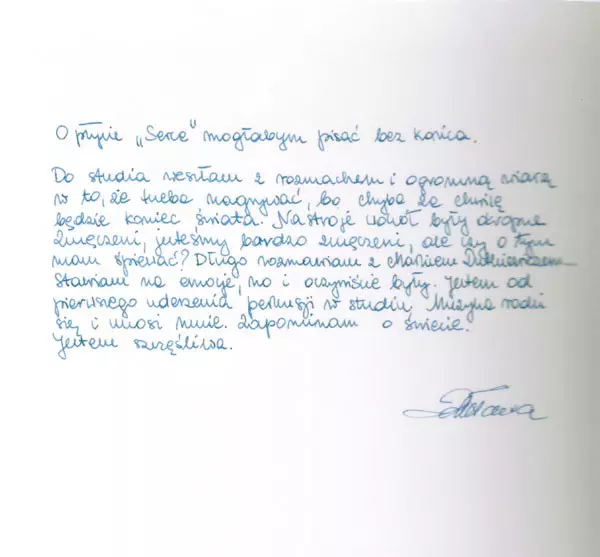 O płycie „Serce" mogłabym pisać bez końca.
Do studia weszłam z rozmachem i ogromną wiarą
w to, że trzeba nagrywać, bo chyba za chwilę
będzie koniec świata. Nastroje wokół były okropne
zmęczeni, jesteśmy bardzo zmęczeni, ale czy o tym
mam śpiewać? Długo rozmawiam z Marcinem
Stawiam na emocje, no i oczywiście były. Jestem od
pierwszego uderzenia perkusji w studiu, Muzyka rodzi
się i unosi mnie. Zapominam o świecie.
Jestem szczęśliwa.